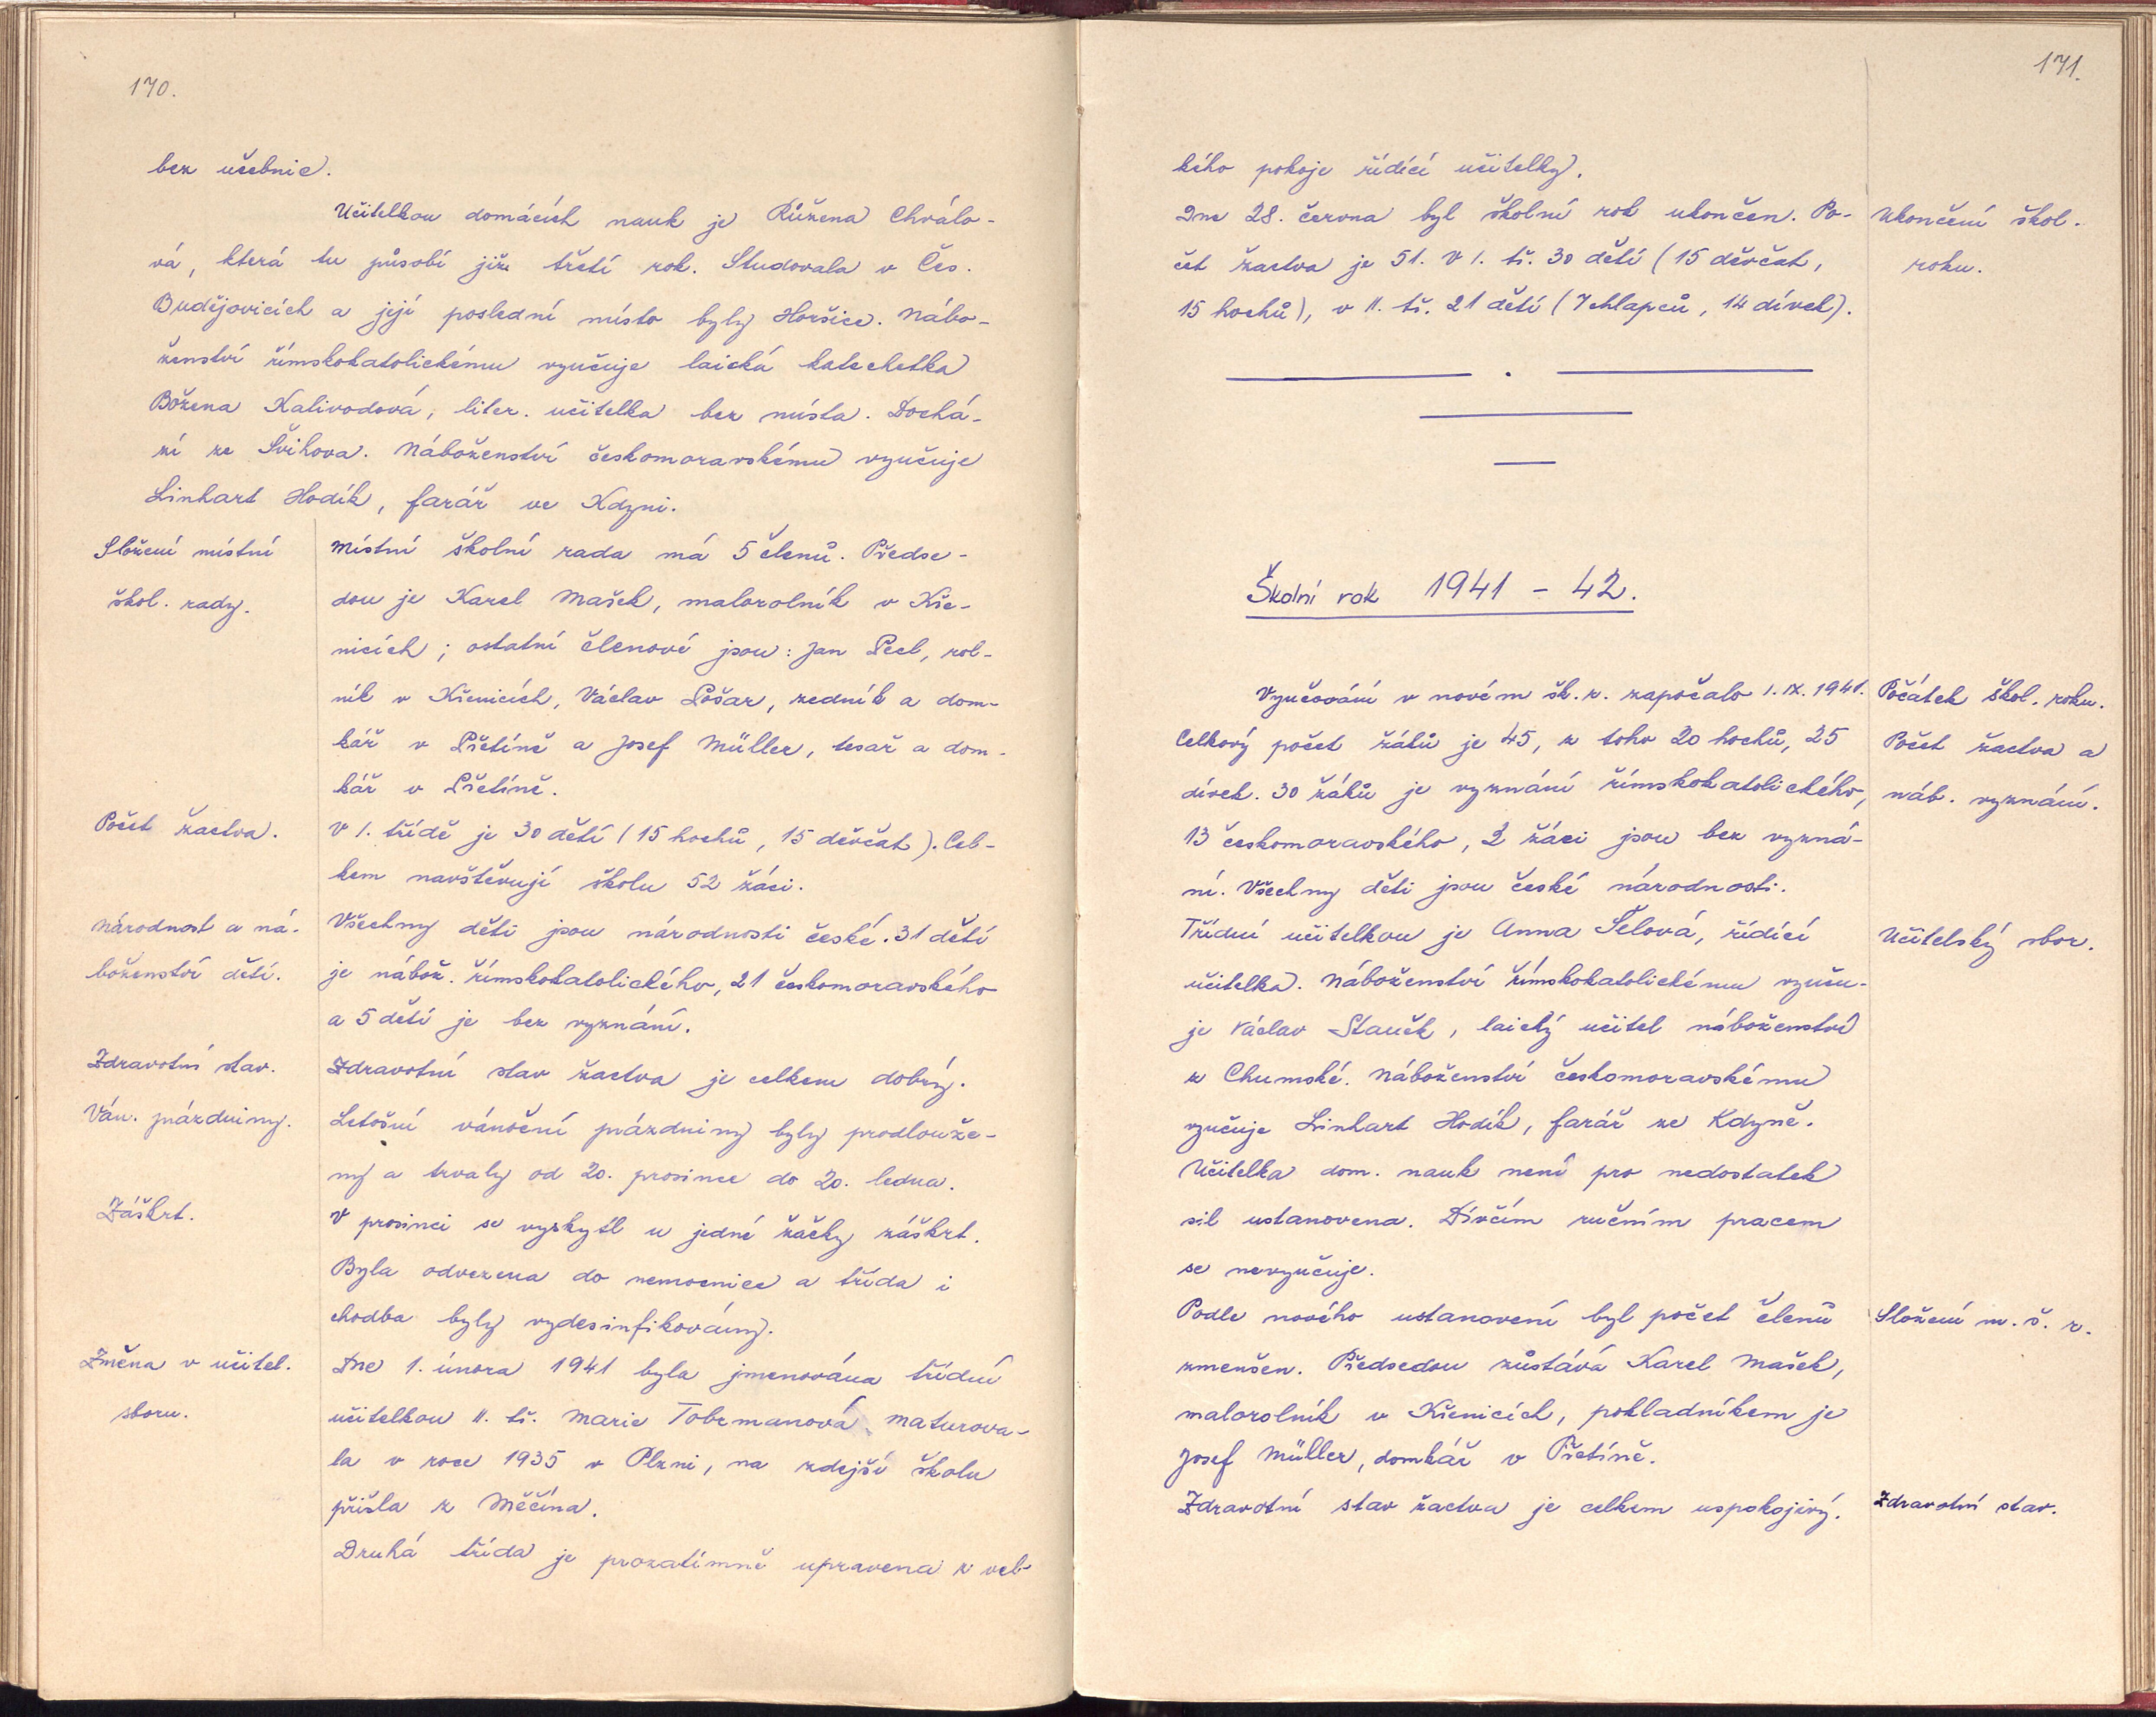 170.
bez učebnic.
Učitelkou domácích nauk je Růžena Chválo-
vá, která tu působí již třetí rok. Studovala v Čes.
Budějovicích a její poslední místo byly Horšice. Nábo-
ženství římskokatolickému vyučuje laická katechetka
Božena Kalivodová, liter. učitelka bez místa. Dochá-
zí ze Švihova. Náboženství českomoravskému vyučuje
Linhart Hodík, farář ve Kdyni.
Složení místní
škol. rady.
Místní školní rada má 5 členů. Předse-
dou je Karel Mašek, malorolník v Kře-
nicích; ostatní členové jsou: Jan Pecl, rol-
ník v Křenicích, Václav Lošar, zedník a dom-
kář v Přetíně a Josef Müller, tesař a dom-
kář v Přetíně.
Počet žactva.
V I. třídě je 30 dětí (15 hochů, 15 děvčat). Cel-
kem navštěvují školu 52 žáci.
Národnost a ná-
boženství dětí.
Všechny děti jsou národnosti české. 31 dětí
je nábož. římskokatolického, 21 českomoravského
a 5 dětí je bez vyznání.
Zdravotní stav.
Zdravotní stav žactva je celkem dobrý.
Ván. prázdniny.
Letošní vánoční prázdniny byly prodlouže-
ny a trvaly od 20. prosince do 20. ledna.
Záškrt.
V prosinci se vyskytl u jedné žačky záškrt.
Byla odvezena do nemocnice a třída i
chodba byly vydesinfikovány.
Změna v učitel.
sboru.
Dne 1. února 1941 byla jmenována třídní
učitelkou II. tř. Marie Tobrmanová maturova-
la v roce 1935 v Plzni, na zdejší školu
přišla z Měčína.
Druhá třída je prozatímně upravena z vel-
171.
kého pokoje řídící učitelky.
Dne 28. června byl školní rok ukončen. Po-
čet žactva je 51. V I. tř. 30 dětí (15 děvčat,
15 hochů), v II. tř. 21 dětí (7 chlapců, 14 dívek).
Ukončení škol.
roku.
Školní rok 1941 - 42.
Vyučování v novém šk. r. započalo 1. IX. 1941.
Počátek škol. roku.
Celkový počet žáků je 45, z toho 20 hochů, 25
dívek. 30 žáků je vyznání římskokatolického,
13 českomoravského, 2 žáci jsou bez vyzná-
ní. Všechny děti jsou české národnosti.
Počet žactva a
náb. vyznání.
Třídní učitelkou je Anna Šelová, řídící
učitelka. Náboženství římskokatolickému vyuču-
je Václav Stauěk, laický učitel náboženství
z Chumské. Náboženství českomoravskému
vyučuje Linhart Hodík, farář ze Kdyně.
Učitelka dom. nauk není pro nedostatek
sil ustanovena. Dívčím ručním pracem
se nevyučuje.
Učitelský sbor.
Podle nového ustanovení byl počet členů
zmenšen. Předsedou zůstává Karel Mašek,
malorolník v Křenicích, pokladníkem je
Josef Müller, domkář v Přetíně.
Složení m. š. r.
Zdravotní stav žactva je celkem uspokojivý.
Zdravotní stav.